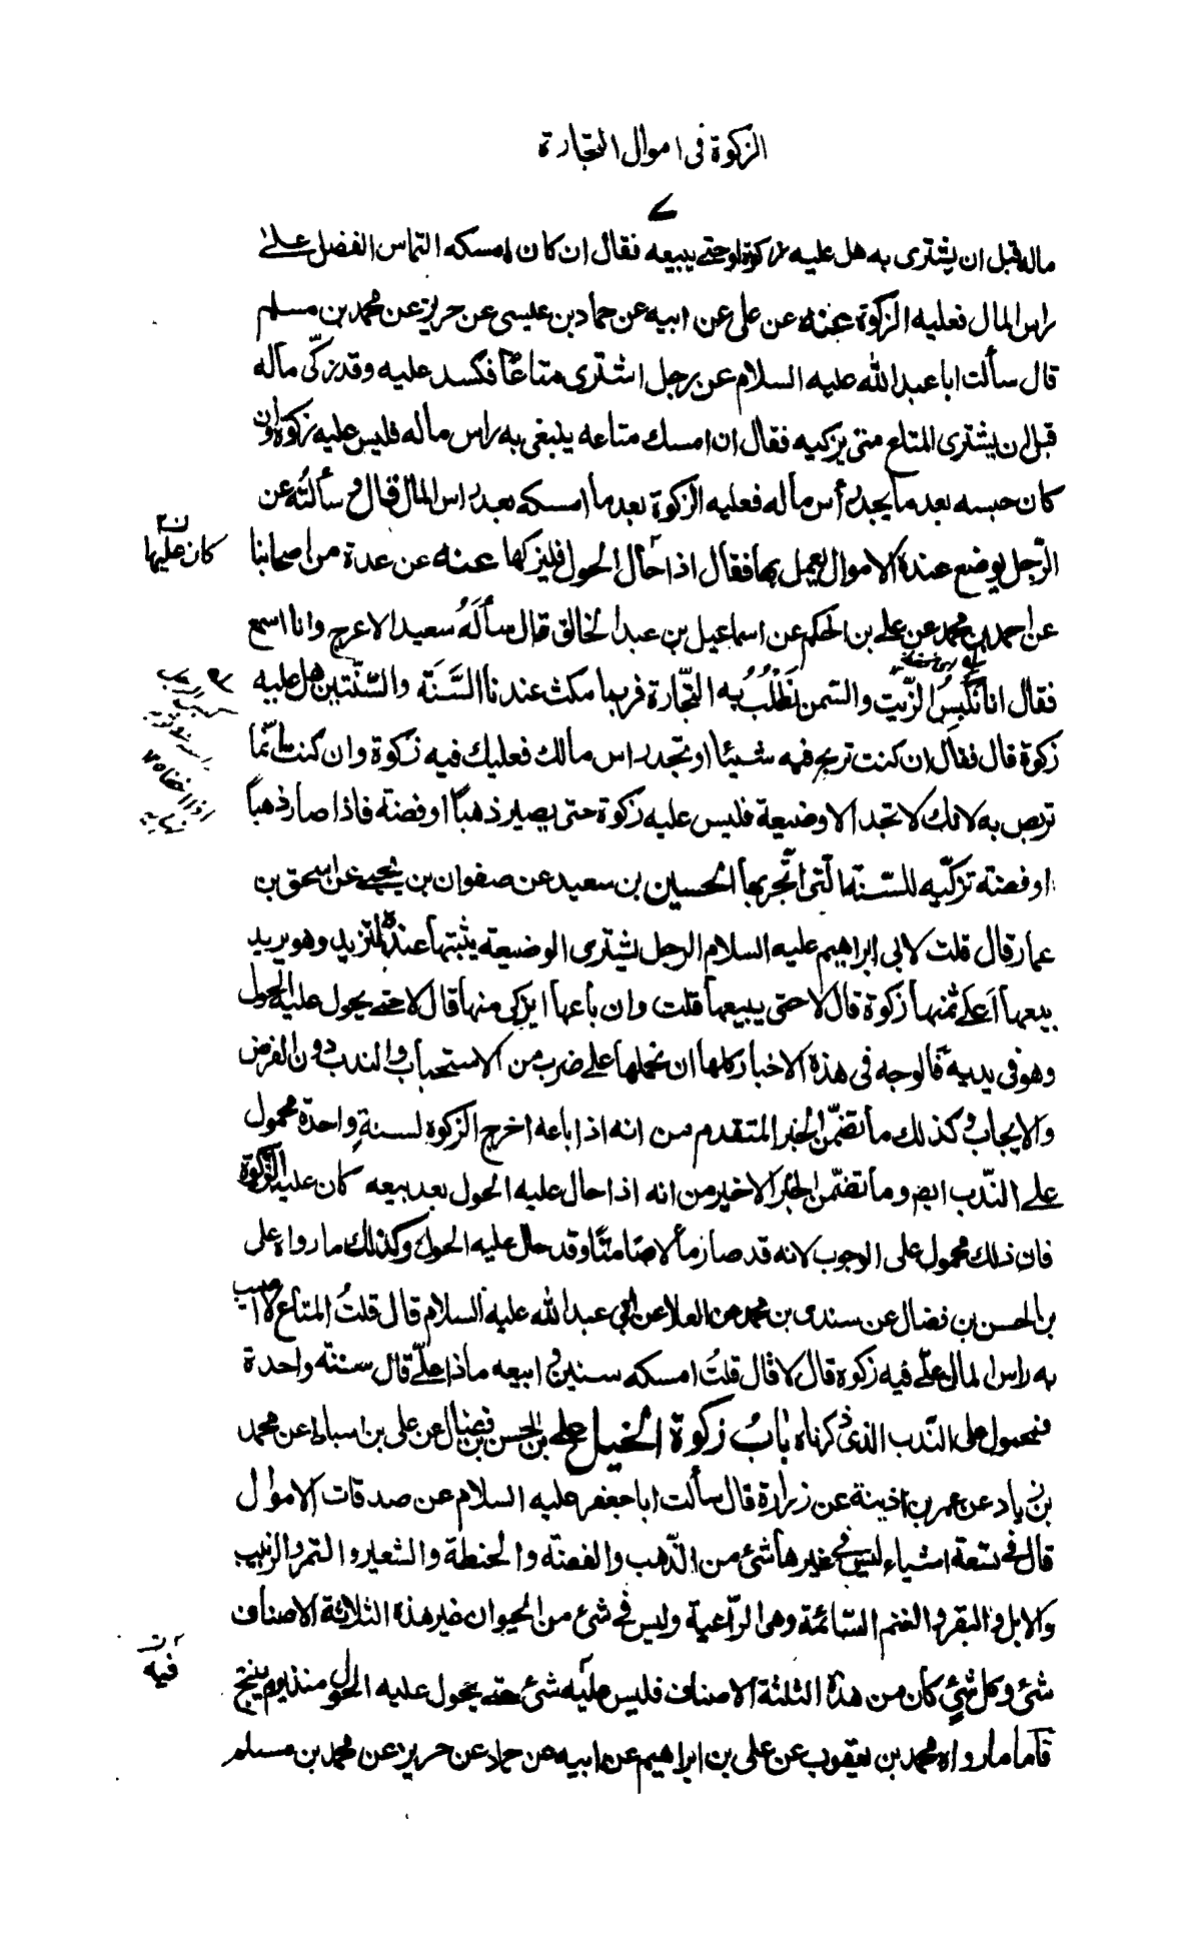 الزكوة في اموال التجارة
ماله قبل ان يشترى به هل عليه زكوة او حتى يبيعه فقال ان كان امسكه التماس الفضل على
راس المال فعليه الزكوة عنه عن على عن ابيه عن حماد بن عيسى عن حريز عن محمد بن مسلم
قال سألت ابا عبد الله عليه السلام عن رجل اشترى متاعًا فكسد عليه وقد زكّى ماله
قبل ان يشترى المتاع متى يزكيه فقال ان امسك متاعه يبتغى به راس ماله فليس عليه زكوة وان
كان حبسه بعد ما يجد رأس ماله فعليه الزكوة بعد ما امسكه بعد راس المال قال وسألتُه عن
الرّجل يوضع عنده الاموال يعمل بها فقال اذا حال الحول فليزكها عنه عن عدة من اصحابنا
كان عليها
عن احمد بن محمد عن على بن الحكم عن اسماعيل بن عبد الخالق قال سألَهُ سعيد الاعرج وانا اسمع
فقال انا نَكْبِسُ الزّيت والسّمن نَطْلُبُ به التّجارة فربما مكث عندنا السَّنَة والسّنتين هل عليه
زكوة قال فقال ان كنت تربح فيه شيئا او تجد راس مالك فعليك فيه زكوة وان كنت انّما
تربص به لانك لا تجد الا وضيعة فليس عليه زكوة حتى يصير ذهبًا او فضة فاذا صار ذهبًا
او فضة تزكّيه للسّنة الّتى اتّجر بها الحسين بن سعيد عن صفوان بن يحيى عن اسحق بن
عمار قال قلت لابى ابراهيم عليه السلام الرجل يشترى الوضيعة يثبتها عنده لتزيد وهو يريد
بيعها أعلى ثمنها زكوة قال لا حتى يبيعها قلت وان باعها ايزكى منها قال لا حتى يحول عليه الحول
وهو فى يديه فالوجه فى هذه الاخبار كلها ان نحملها على ضرب من الاستحباب والندب دون الفرض
والايجاب وكذلك ما تضمّن الخبر المتقدم من انه اذا باعه اخرج الزكوة لسنةٍ واحدة محمول
على النّدب ايضا وما تضمّن الخبر الاخير من انه اذا حال عليه الحول بعد بيعه كان عليه الزّكوة
فان ذلك محمول على الوجوب لانه قد صار مالا صامتًا وقد حال عليه الحول وكذلك ما رواه على
بن الحسن بن فضال عن سندى بن محمد عن العلا عن ابى عبد الله عليه السلام قال قلتُ المتاع لا اصيب
به راس المال علىّ فيه زكوة قال لا قال قلتُ امسكه سنين و ابيعه ماذا علىّ قال سنة واحدة
فمحمول على النّدب الذى ذكرناه بابُ زكوة الخيل على بن الحسن بن فضال عن على بن اسباط عن محمد
بن زياد عن عمر بن اذينة عن زرارة قال سألت ابا جعفر عليه السلام عن صدقات الاموال
قال فى تسعة اشياء ليس فى غيرها شئ من الذّهب والفضة والحنطة والشعير والتمر والزبيب
والابل والبقر والغنم السّائمة وهى الرّاعية وليس فى شئ من الحيوان غير هذه الثلاثة الاصناف
شئ وكل شئٍ كان من هذه الثلثة الاصناف فليس عليه شئ حتى يحول عليه الحول منذ يوم ينتج
فيه
فاما ما رواه محمد بن يعقوب عن على بن ابراهيم عن ابيه عن حماد عن حريز عن محمد بن مسلم